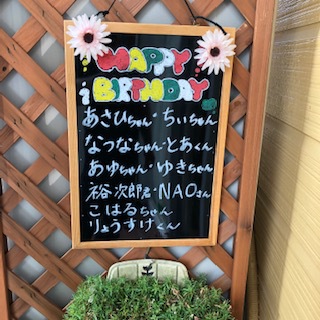 HAPPY
BIRTHDAY
あさひちゃん・ちぃちゃん
なつなちゃん・とあくん
あゆちゃん・ゆきちゃん
裕次郎君・NAOさん
こはるちゃん
りょうすけくん